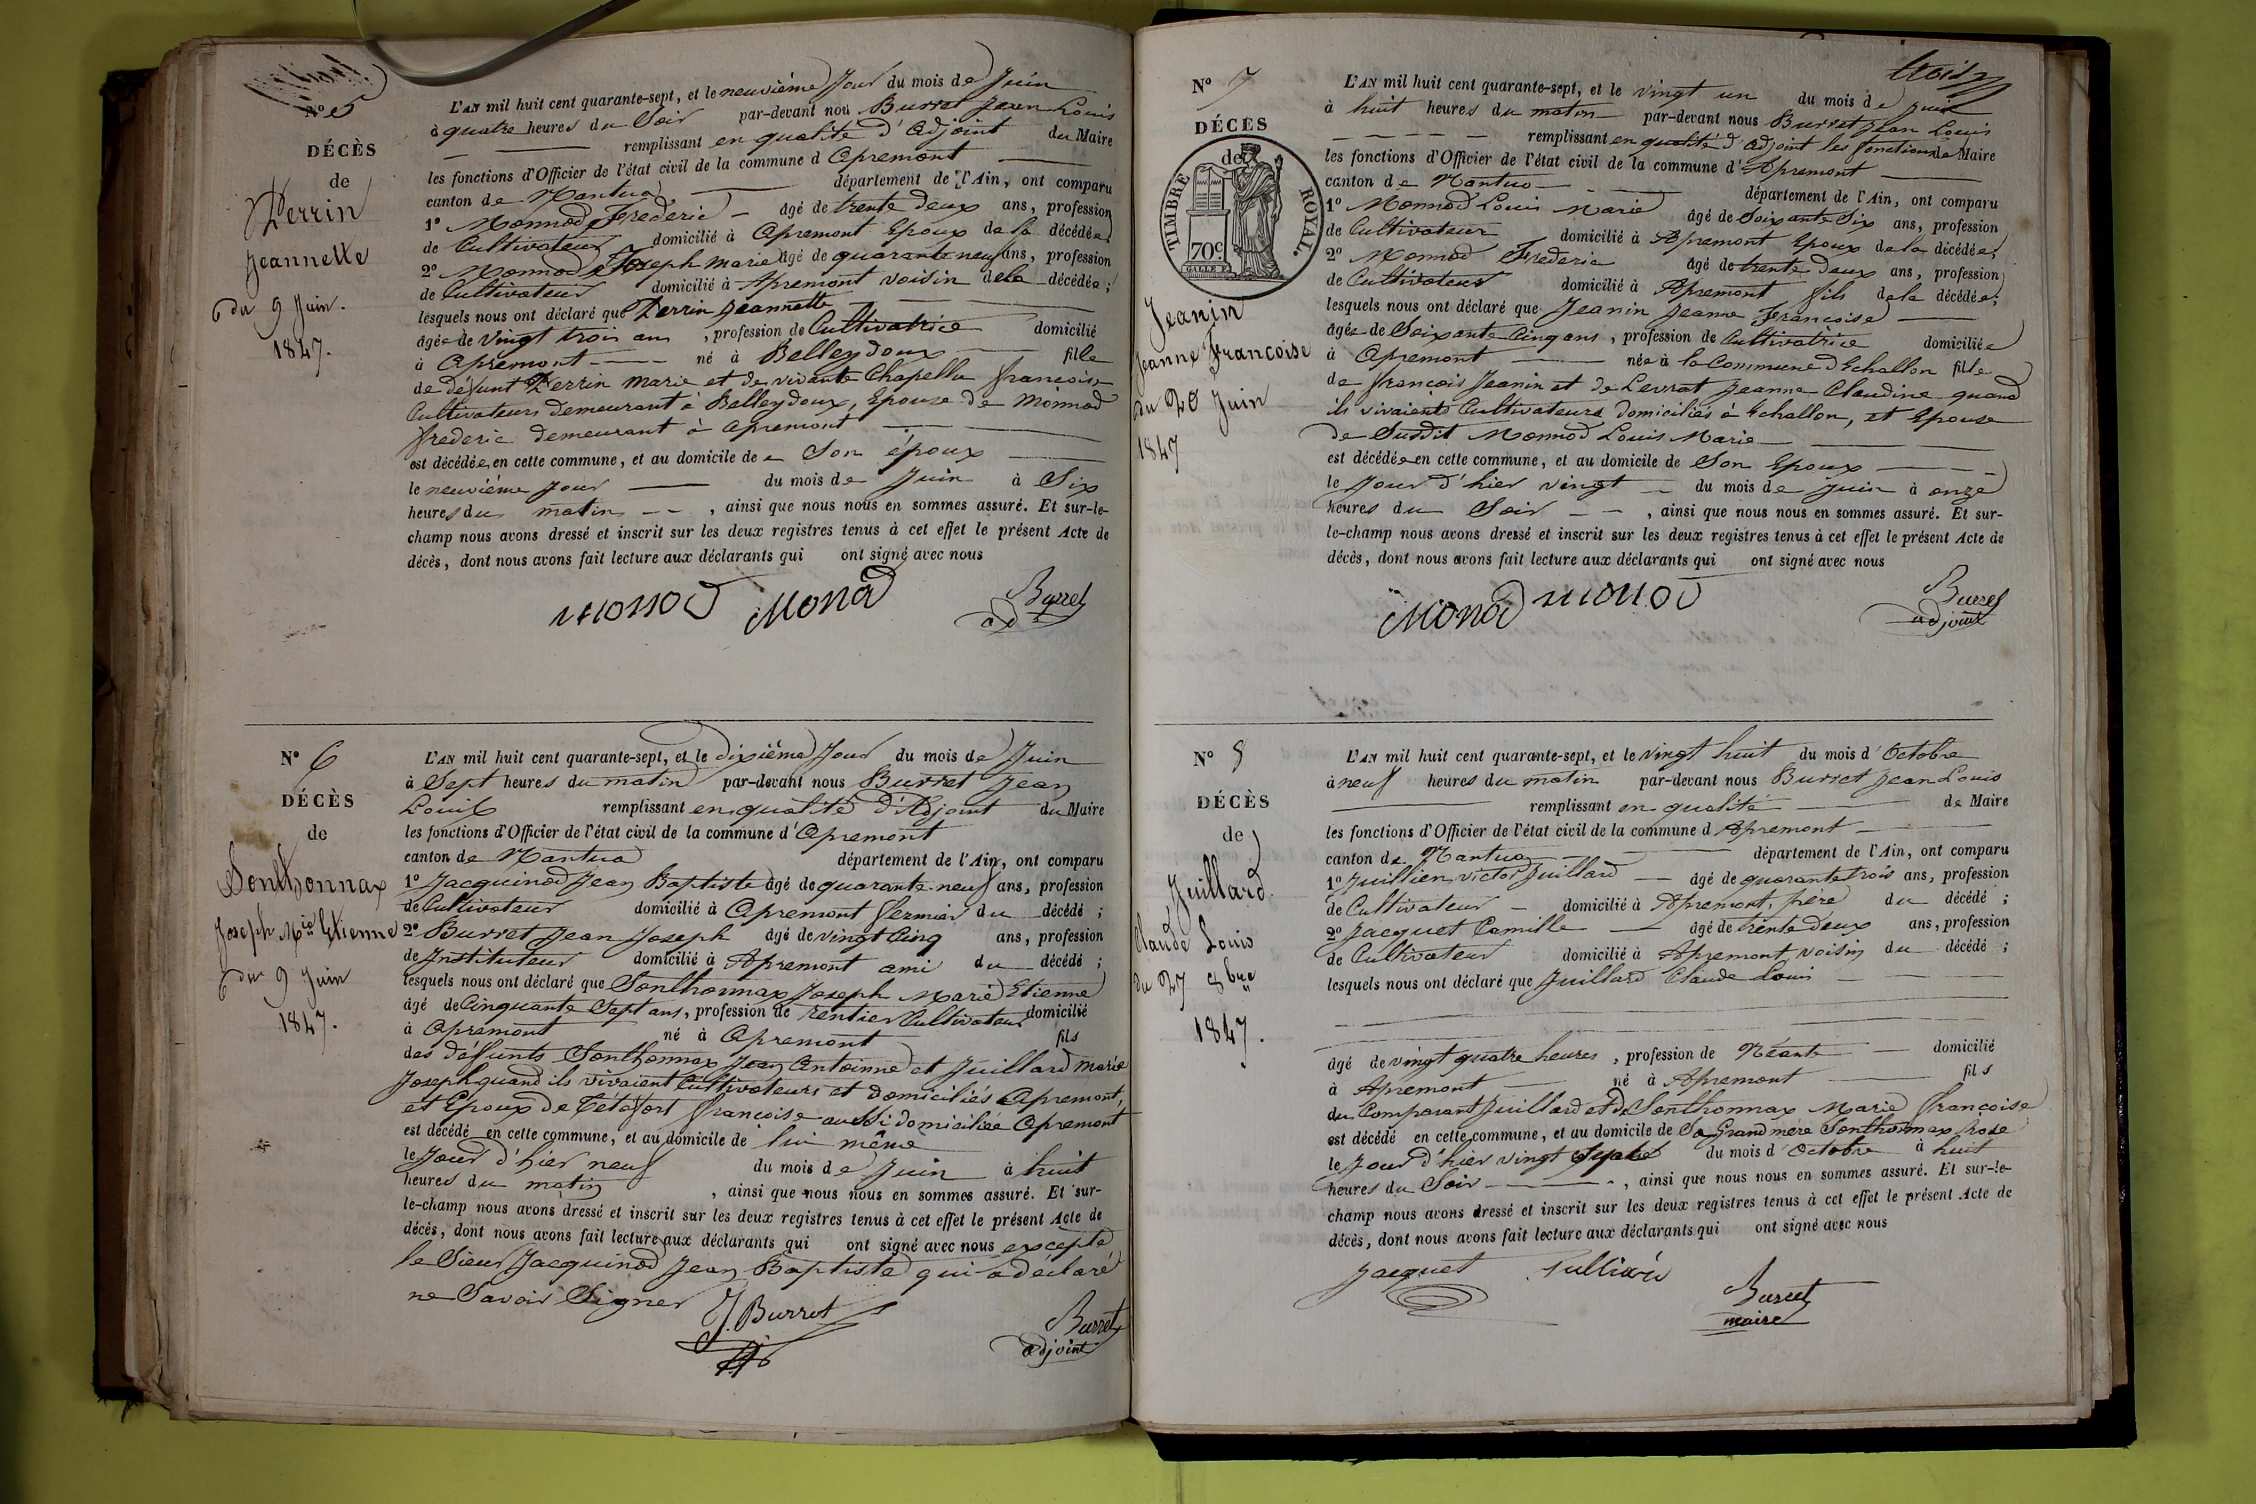 N° 5
DÉCÈS
de
Perrin
Jeannette
du 9 Juin.
1847.
L'AN mil huit cent quarante-sept, et le neuvième Jour du mois de Juin
à quatre heures du Soir par-devant nous Burret Jean Louis
remplissant en qualité d'Adjoint du Maire
les fonctions d'Officier de l'état civil de la commune d Apremont
canton de Nantua département de l'Ain, ont comparu
1° Monnod Frederic âgé de trente deux ans, profession
de Cultivateur domicilié à Apremont Epoux de la décédée
2° Monnod Joseph Marie âgé de quarante neuf ans, profession
de Cultivateur domicilié à Apremont voisin dela décédée;
lesquels nous ont déclaré que Perrin Jeannette
âgée de vingt trois ans, profession de Cultivatrice domicilié
à Apremont né à Belleydoux fille
de défunt Perrin Marie et de vivante Chapellu françoise
Cultivateurs demeurant à Belleydoux, Epouse de Monnod
frederic demeurant à apremont
est décédée en cette commune, et au domicile de Son époux
le neuvième Jour du mois de Juin à Six
heures du matin, ainsi que nous nous en sommes assuré. Et sur-le-
champ nous avons dressé et inscrit sur les deux registres tenus à cet effet le présent Acte de
décès, dont nous avons fait lecture aux déclarants qui ont signé avec nous
Monod Monod Burret
adj
N° 6
DÉCÈS
de
Sonthonnax
Joseph Mie Etienne
du 9 Juin
1847.
L'AN mil huit cent quarante-sept, et le dixième Jour du mois de Juin
à Sept heures du matin par-devant nous Burret Jean
Louis remplissant en qualité d'Adjoint du Maire
les fonctions d'Officier de l'état civil de la commune d'Apremont
canton de Nantua département de l'Ain, ont comparu
1° Jacquinod Jean Baptiste âgé de quarante neuf ans, profession
de Cultivateur domicilié à Apremont fermier du décédé;
2° Burret Jean Joseph âgé de vingt Cinq ans, profession
de Instituteur domicilié à Apremont ami du décédé;
lesquels nous ont déclaré que Sonthonnax Joseph Marie Etienne
âgé de Cinquante Sept ans, profession de rentier Cultivateur domicilié
à Apremont né à Apremont fils
des défunts Sonthonnax Jean Antoinne et Juillard Marie
Joseph quand ils vivaient Cultivateurs et domiciliés Apremont,
et Epoux de Tétafort françoise aussi domiciliée Apremont
est décédé en cette commune, et au domicile de lui même
le Jour d'hier neuf du mois de Juin à huit
heures du matin, ainsi que nous nous en sommes assuré. Et sur-
le-champ nous avons dressé et inscrit sur les deux registres tenus à cet effet le présent Acte de
décès, dont nous avons fait lecture aux déclarants qui ont signé avec nous excepté
le Sieur Jacquinod Jean Baptiste qui a déclaré
ne Savoir Signer
J. Burret Burret
adjoint
trois
N° 7
DÉCÈS
de
TIMBRE ROYAL.
70c.
Jeanin
Jeanne Francoise
du 20 Juin
1847
L'AN mil huit cent quarante-sept, et le vingt un du mois de juin
à huit heures du matin par-devant nous Burret Jean Louis
remplissant en qualité d'adjoint les fonctions de Maire
les fonctions d'Officier de l'état civil de la commune d'Apremont
canton de Nantua département de l'Ain, ont comparu
1° Monnod Louis Marie âgé de Soixante Six ans, profession
de Cultivateur domicilié à Apremont Epoux dela décédée;
2° Monnod Frederic âgé de trente deux ans, profession
de Cultivateur domicilié à Apremont fils dela décédée;
lesquels nous ont déclaré que Jeanin Jeanne Françoise
âgée de Soixante Cinq ans, profession de Cultivatrice domiciliée
à Apremont née à la Commune d'Echallon fille
de françois Jeanin et de Levrat Jeanne Claudine quand
ils vivaients Cultivateurs domiciliés à Echallon, et Epouse
de Susdit Monnod Louis Marie
est décédée en cette commune, et au domicile de Son Epoux
le Jour d'hier vingt du mois de Juin à onze
heures du Soir, ainsi que nous nous en sommes assuré. Et sur-
le-champ nous avons dressé et inscrit sur les deux registres tenus à cet effet le présent Acte de
décès, dont nous avons fait lecture aux déclarants qui ont signé avec nous
Monod Monod Burret
adjoint
N° 8
DÉCÈS
de
Juillard.
Claude Louis
du 27 8bre
1847.
L'AN mil huit cent quarante-sept, et le vingt huit du mois d'Octobre
à neuf heures du matin par-devant nous Burret Jean Louis
remplissant en qualité de Maire
les fonctions d'Officier de l'état civil de la commune d Apremont
canton de Nantua département de l'Ain, ont comparu
1° Juillien victor Juillard âgé de quarante trois ans, profession
de Cultivateur domicilié à Apremont, père du décédé;
2° Jacquet Camille âgé de trente deux ans, profession
de Cultivateur domicilié à Apremont, voisin du décédé;
lesquels nous ont déclaré que Juillard Claude Louis
âgé de vingt quatre heures, profession de Néante domicilié
à Apremont né à Apremont fils
du Comparant Juillard et de Sonthonnax Marie françoise
est décédé en cette commune, et au domicile de Sa Grand mère Sonthonnax Rose
le Jour d'hier vingt Sept du mois d'Octobre à huit
heures du Soir, ainsi que nous nous en sommes assuré. Et sur-le-
champ nous avons dressé et inscrit sur les deux registres tenus à cet effet le présent Acte de
décès, dont nous avons fait lecture aux déclarants qui ont signé avec nous
Jacquet Burret
maire